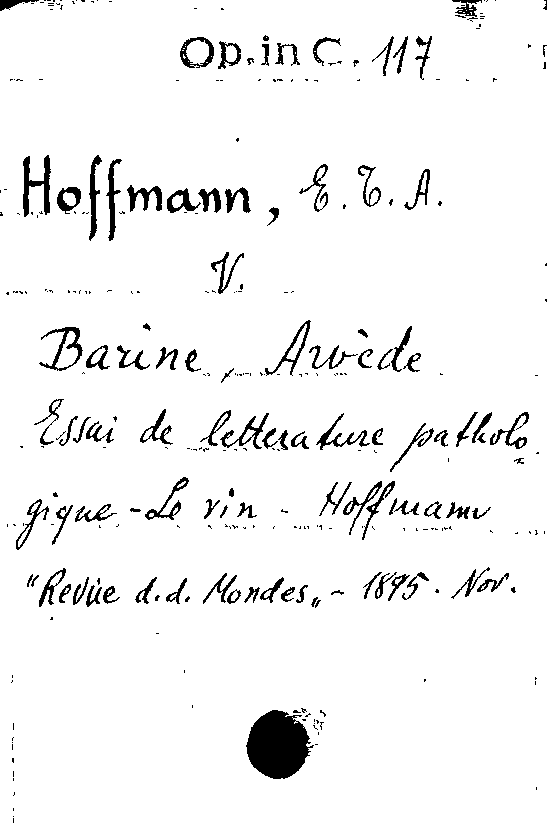 Op. in C. 117
Hoffmann, E. T. A.
V.
Barine, Arvède
Essai de letterature patholo
gique - Le vin - Hoffmann
"Revue d. d. Mondes„ - 1895. Nov.